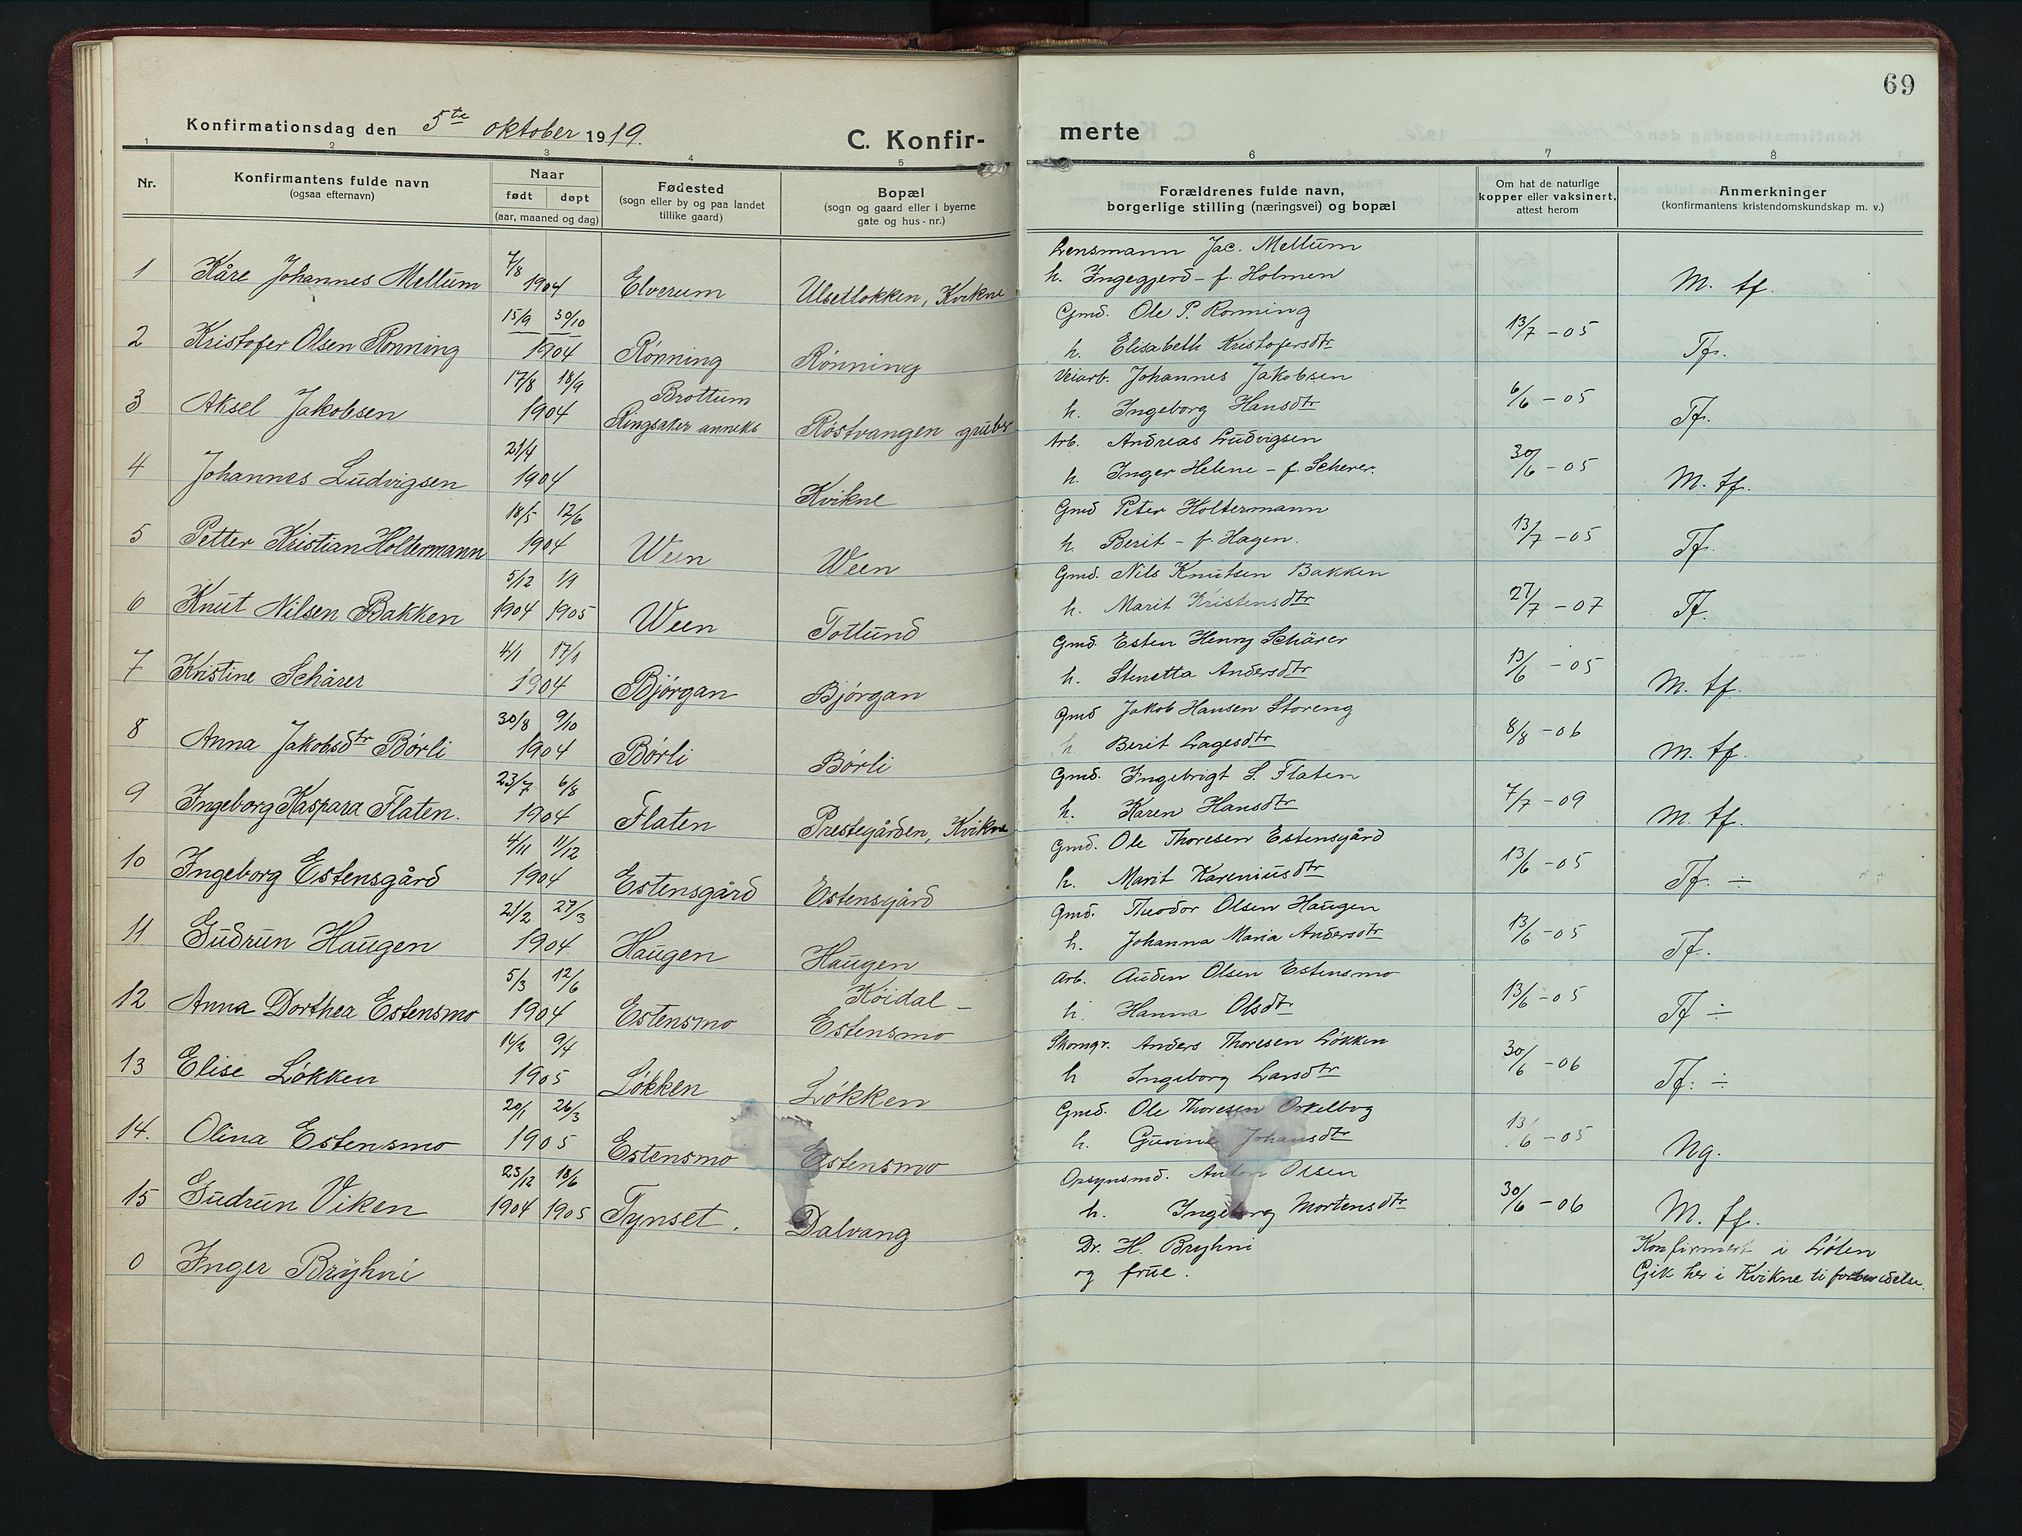 69
Konfirmationsdag den 5te oktober 1919. C. Konfir- merte
1 2 3 4 5 6 7 8
Nr. Konfirmantens fulde navn (ogsaa efternavn) Naar født døpt (aar, maaned og dag) Fødested (sogn eller by og paa landet tillike gaard) Bopæl (sogn og gaard eller i byerne gate og hus-nr.) Forældrenes fulde navn, borgerlige stilling (næringsvei) og bopæl Om hat de naturlige kopper eller vaksinert, attest herom Anmerkninger (konfirmantens kristendomskundskap m. v.)
7/8 Lensmann Jac. Mellum
1 Kåre Johannes Mellum 1904 Elverum Ulsetløkken, Kvikne h. Ingegjerd - f. Holmen M. tf.
15/9 30/10 Gmd. Ole P. Rønning
2 Kristofer Olsen Rønning 1904 Rønning Rønning h. Elisabeth Kristofersdtr 13/7 - 05 Tf.
17/8 18/9 Brøttum Veiarb. Johannes Jakobsen
3 Aksel Jakobsen 1904 Ringsaker anneks Røstvangen gruber h. Ingeborg Hansdtr 6/6 - 05 Tf.
21/4 Arb. Andreas Ludvigsen
4 Johannes Ludvigsen 1904 Kvikne h. Inger Helene - f. Scherer. 30/6 - 05 M. tf.
18/5 12/6 Gmd Peter Holtermann
5 Petter Kristian Holtermann 1904 Ween Ween h. Berit - f. Hagen. 13/7 - 05 Tf.
5/12 1/9 Gmd. Nils Knutsen Bakken
6 Knut Nilsen Bakken 1904 1905 Ween Totlund h. Marit Kristensdtr 27/7 - 07 Tf.
4/1 17/1 Gmd. Esten Henny Schärer
7 Kristine Schårer 1904 Bjørgan Bjørgan h. Stenetta Andersdtr 13/6 - 05 M. tf.
30/8 9/10 Gmd Jakob Hansen Storeng
8 Anna Jakobsdtr Børli 1904 Børli Børli h Berit Lagesdtr 8/8 - 06 M. tf.
23/7 6/8 Gmd. Ingebrigt L. Flaten
9 Ingeborg Kaspara Flaten. 1904 Flaten Prestegården, Kvikne h. Karen Hansdtr 7/7 - 09 M. tf.
4/11 11/12 Gmd. Ole Thoresen Estensgård
10 Ingeborg Estensgård 1904 Estensgård Estensgård h. Marit Kareniusdtr 13/6 - 05 Tf. ÷
21/2 27/3 Gmd. Theodor Olsen Haugen
11 Gudrun Haugen 1904 Haugen Haugen h. Johanna Maria Andersdtr 13/6 - 05 Tf.
5/3 12/6 Køidal - Arb. Auden Olsen Estensmo
12 Anna Dorthea Estensmo 1904 Estensmo Estensmo h. Hanna Olsdtr 13/6 - 05 Tf ÷
14/2 9/4 Skomgr. Anders Thoresen Løkken
13 Elise Løkken 1905 Løkken Løkken h Ingeborg Larsdtr 30/6 - 06 Tf. ÷
20/1 26/3 Gmd. Ole Thoresen Orkelbog
14. Olina Estensmo 1905 Estensmo Estensmo h. Johansdtr 13/6 - 05 Ng.
25/12 18/6 Opsynsmd. Anton Olsen
15 Gudrun Viken 1904 1905 Tynset. Dalvang h. Ingeborg Mortensdtr 30/6 - 06 M. tf.
Dr. H. Bryhni Konfirmert i Løten
0 Inger Bryhni og frue. Gik her i Kvikne ti forberedelse.